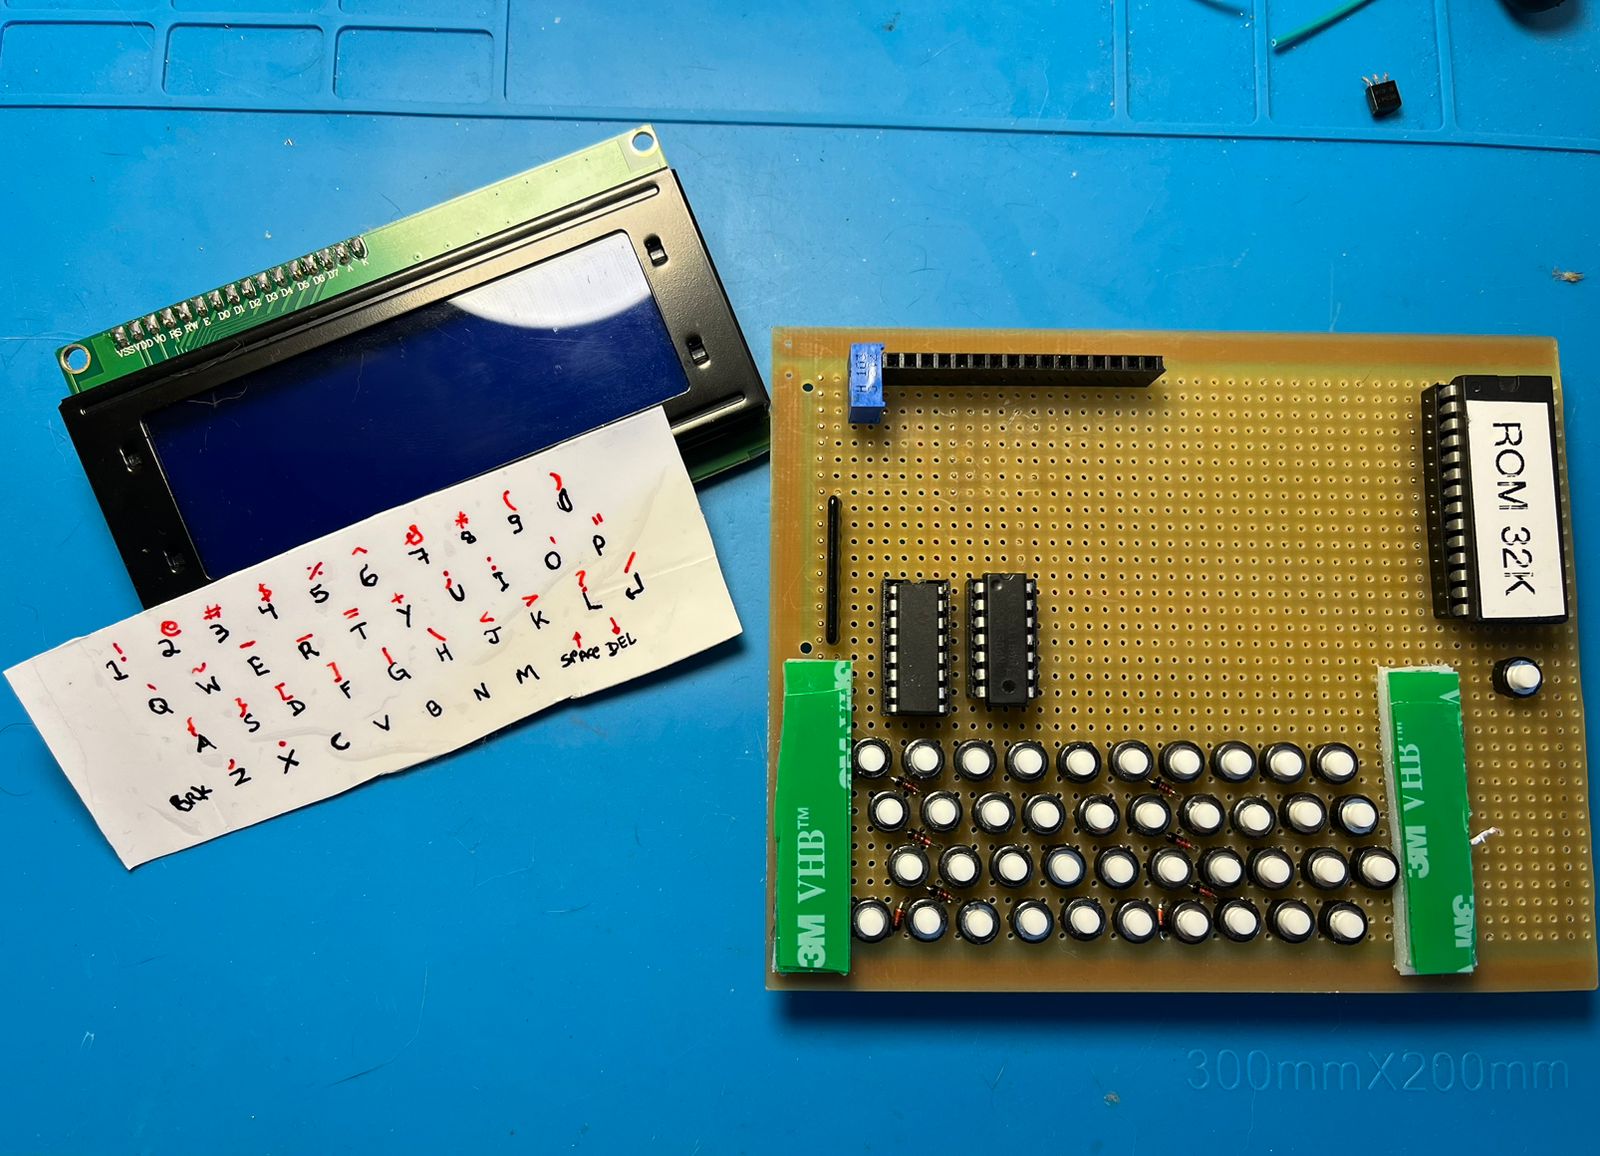 VSS VDD VO RS RW E D0 D1 D2 D3 D4 D5 D6 D7 A K
! @ # $ % ^ & * ( )
1 2 3 4 5 6 7 8 9 0
Q W E R T Y U I O P
A S D F G H J K L
BRK Z X C V B N M SPACE DEL
ROM 32K
3M VHB™
3M VHB™
3M
300mmX200mm